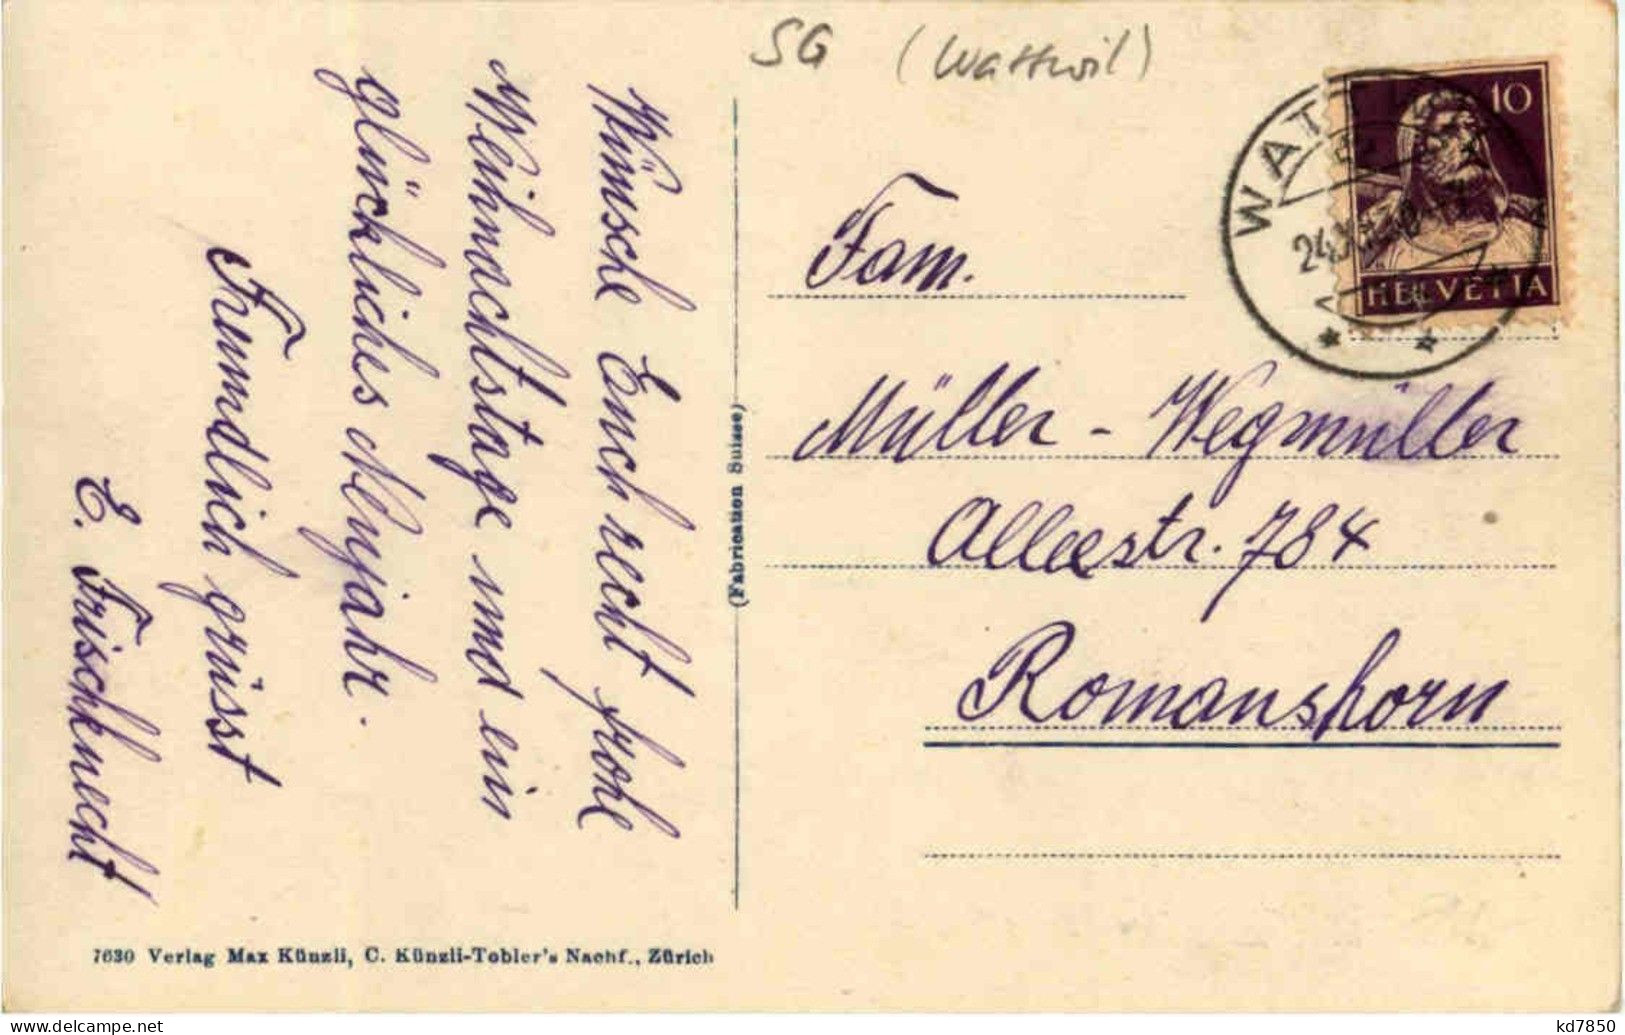 SG (Wattwil)
Wünsche Euch recht frohe
Weihnachtstage und ein
glückliches Neujahr.
Freundlich grüsst
E. Frischknecht
(Fabrication Suisse)
10
HELVETIA
WAT
24.XII.
Fam.
Müller - Wegmüller
Alleestr. 784
Romanshorn
7630 Verlag Max Künzli, C. Künzli-Tobler's Nachf., Zürich
delcampe.net
kd7850